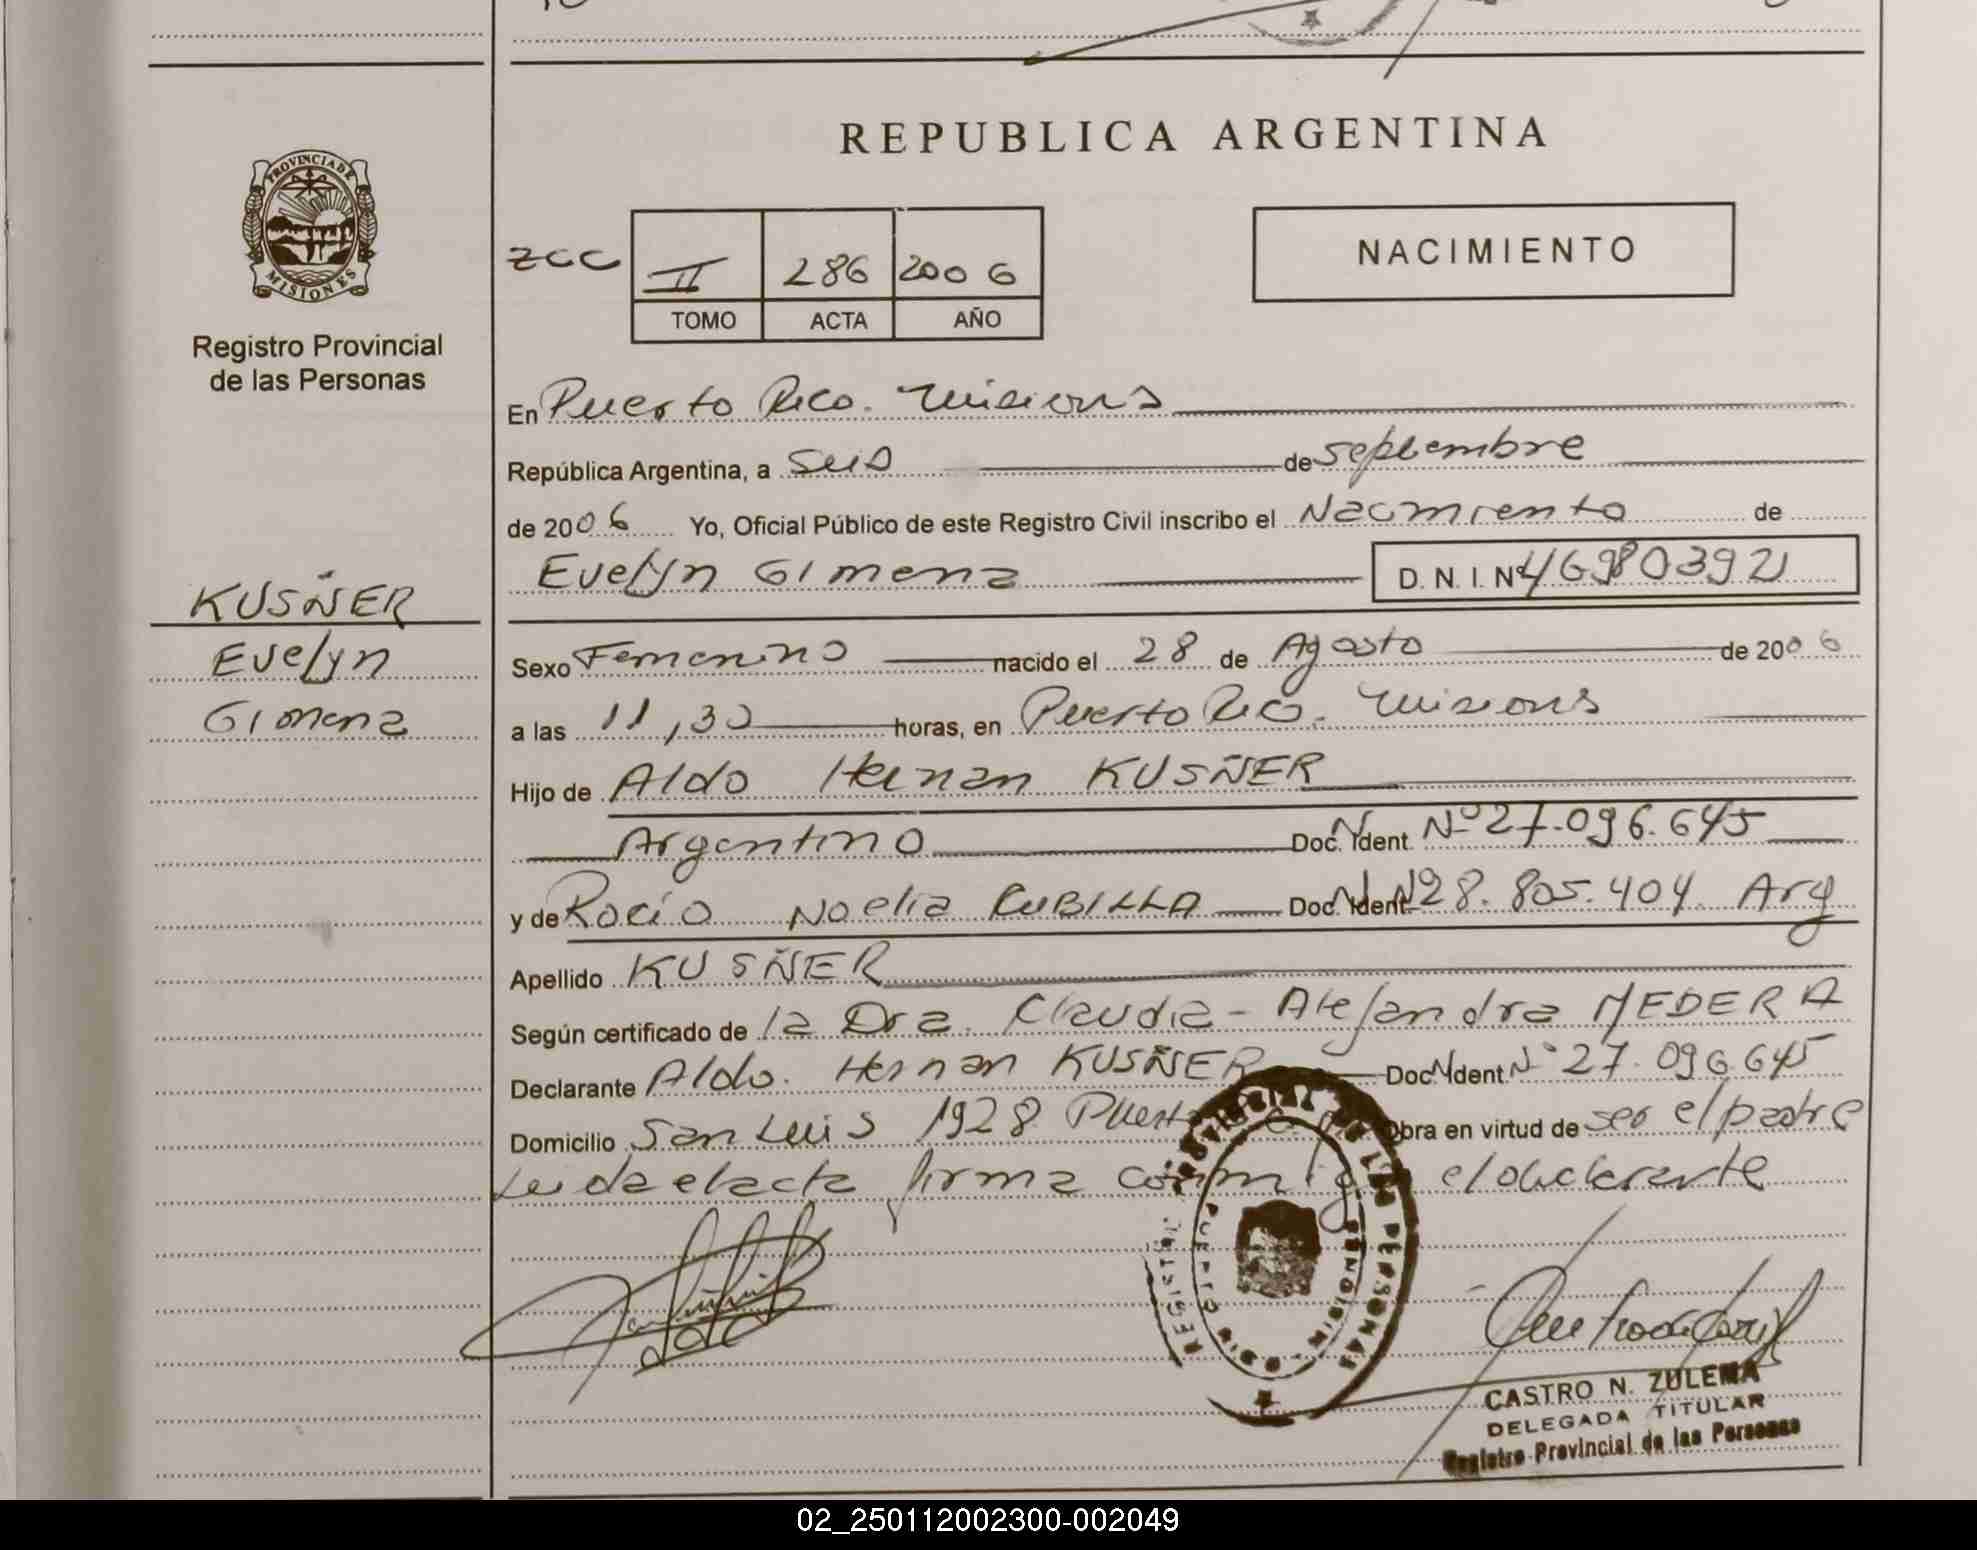 REPUBLICA ARGENTINA
PROVINCIA DE
MISIONES
Registro Provincial
de las Personas
II 286 2006
TOMO ACTA AÑO
NACIMIENTO
En Puerto Rico. Misiones
República Argentina, a seis de septiembre
de 2006 Yo, Oficial Público de este Registro Civil inscribo el Nacimiento de
Evelyn Gimena D.N.I. Nº 46980392
KUSÑER
Evelyn
Gimena
Sexo Femenino nacido el 28 de Agosto de 2006
a las 11,30 horas, en Puerto Rico. Misiones
Hijo de Aldo Hernan KUSÑER
Argentino Doc. Ident. Nº 27.096.645
y de Rocio Noelia CUBILLA Doc. Ident. Nº 28.805.404 Arg
Apellido KUSÑER
Según certificado de la Dra. Claudia - Alejandra MEDERA
Declarante Aldo. Hernan KUSÑER Doc. Ident. Nº 27.096.645
Domicilio San Luis 1928 Puerto Obra en virtud de ser el padre
Leida el acta firma conmigo el declarante
REGISTRO PROVINCIAL DE LAS PERSONAS
PUERTO RICO
MISIONES
CASTRO N. ZULEMA
DELEGADA TITULAR
Registro Provincial de las Personas
02_250112002300-002049